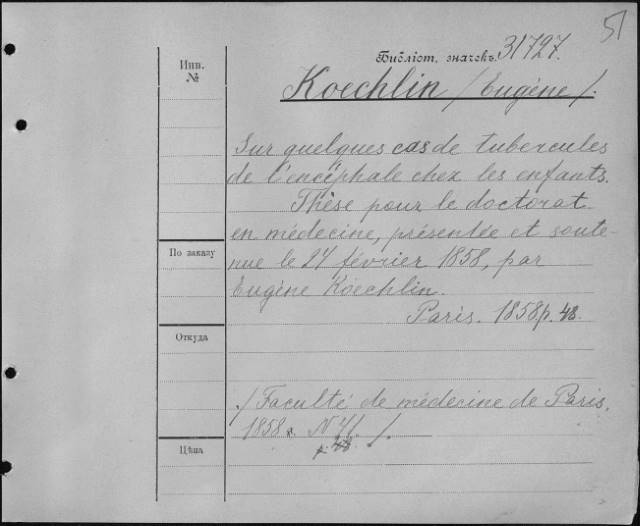 51
Библіот. значекъ 31727.
Инв.
№
Koechlin /Eugène/.
Sur quelques cas de tubercules
de l'encéphale chez les enfants.
Thèse pour le doctorat
en médecine, présentée et soute-
nue le 24 février 1858, par
Eugène Koechlin.
Paris. 1858. p. 48.
По заказу
Откуда
/Faculté de médecine de Paris.
1858. N 41
/.
Цѣна